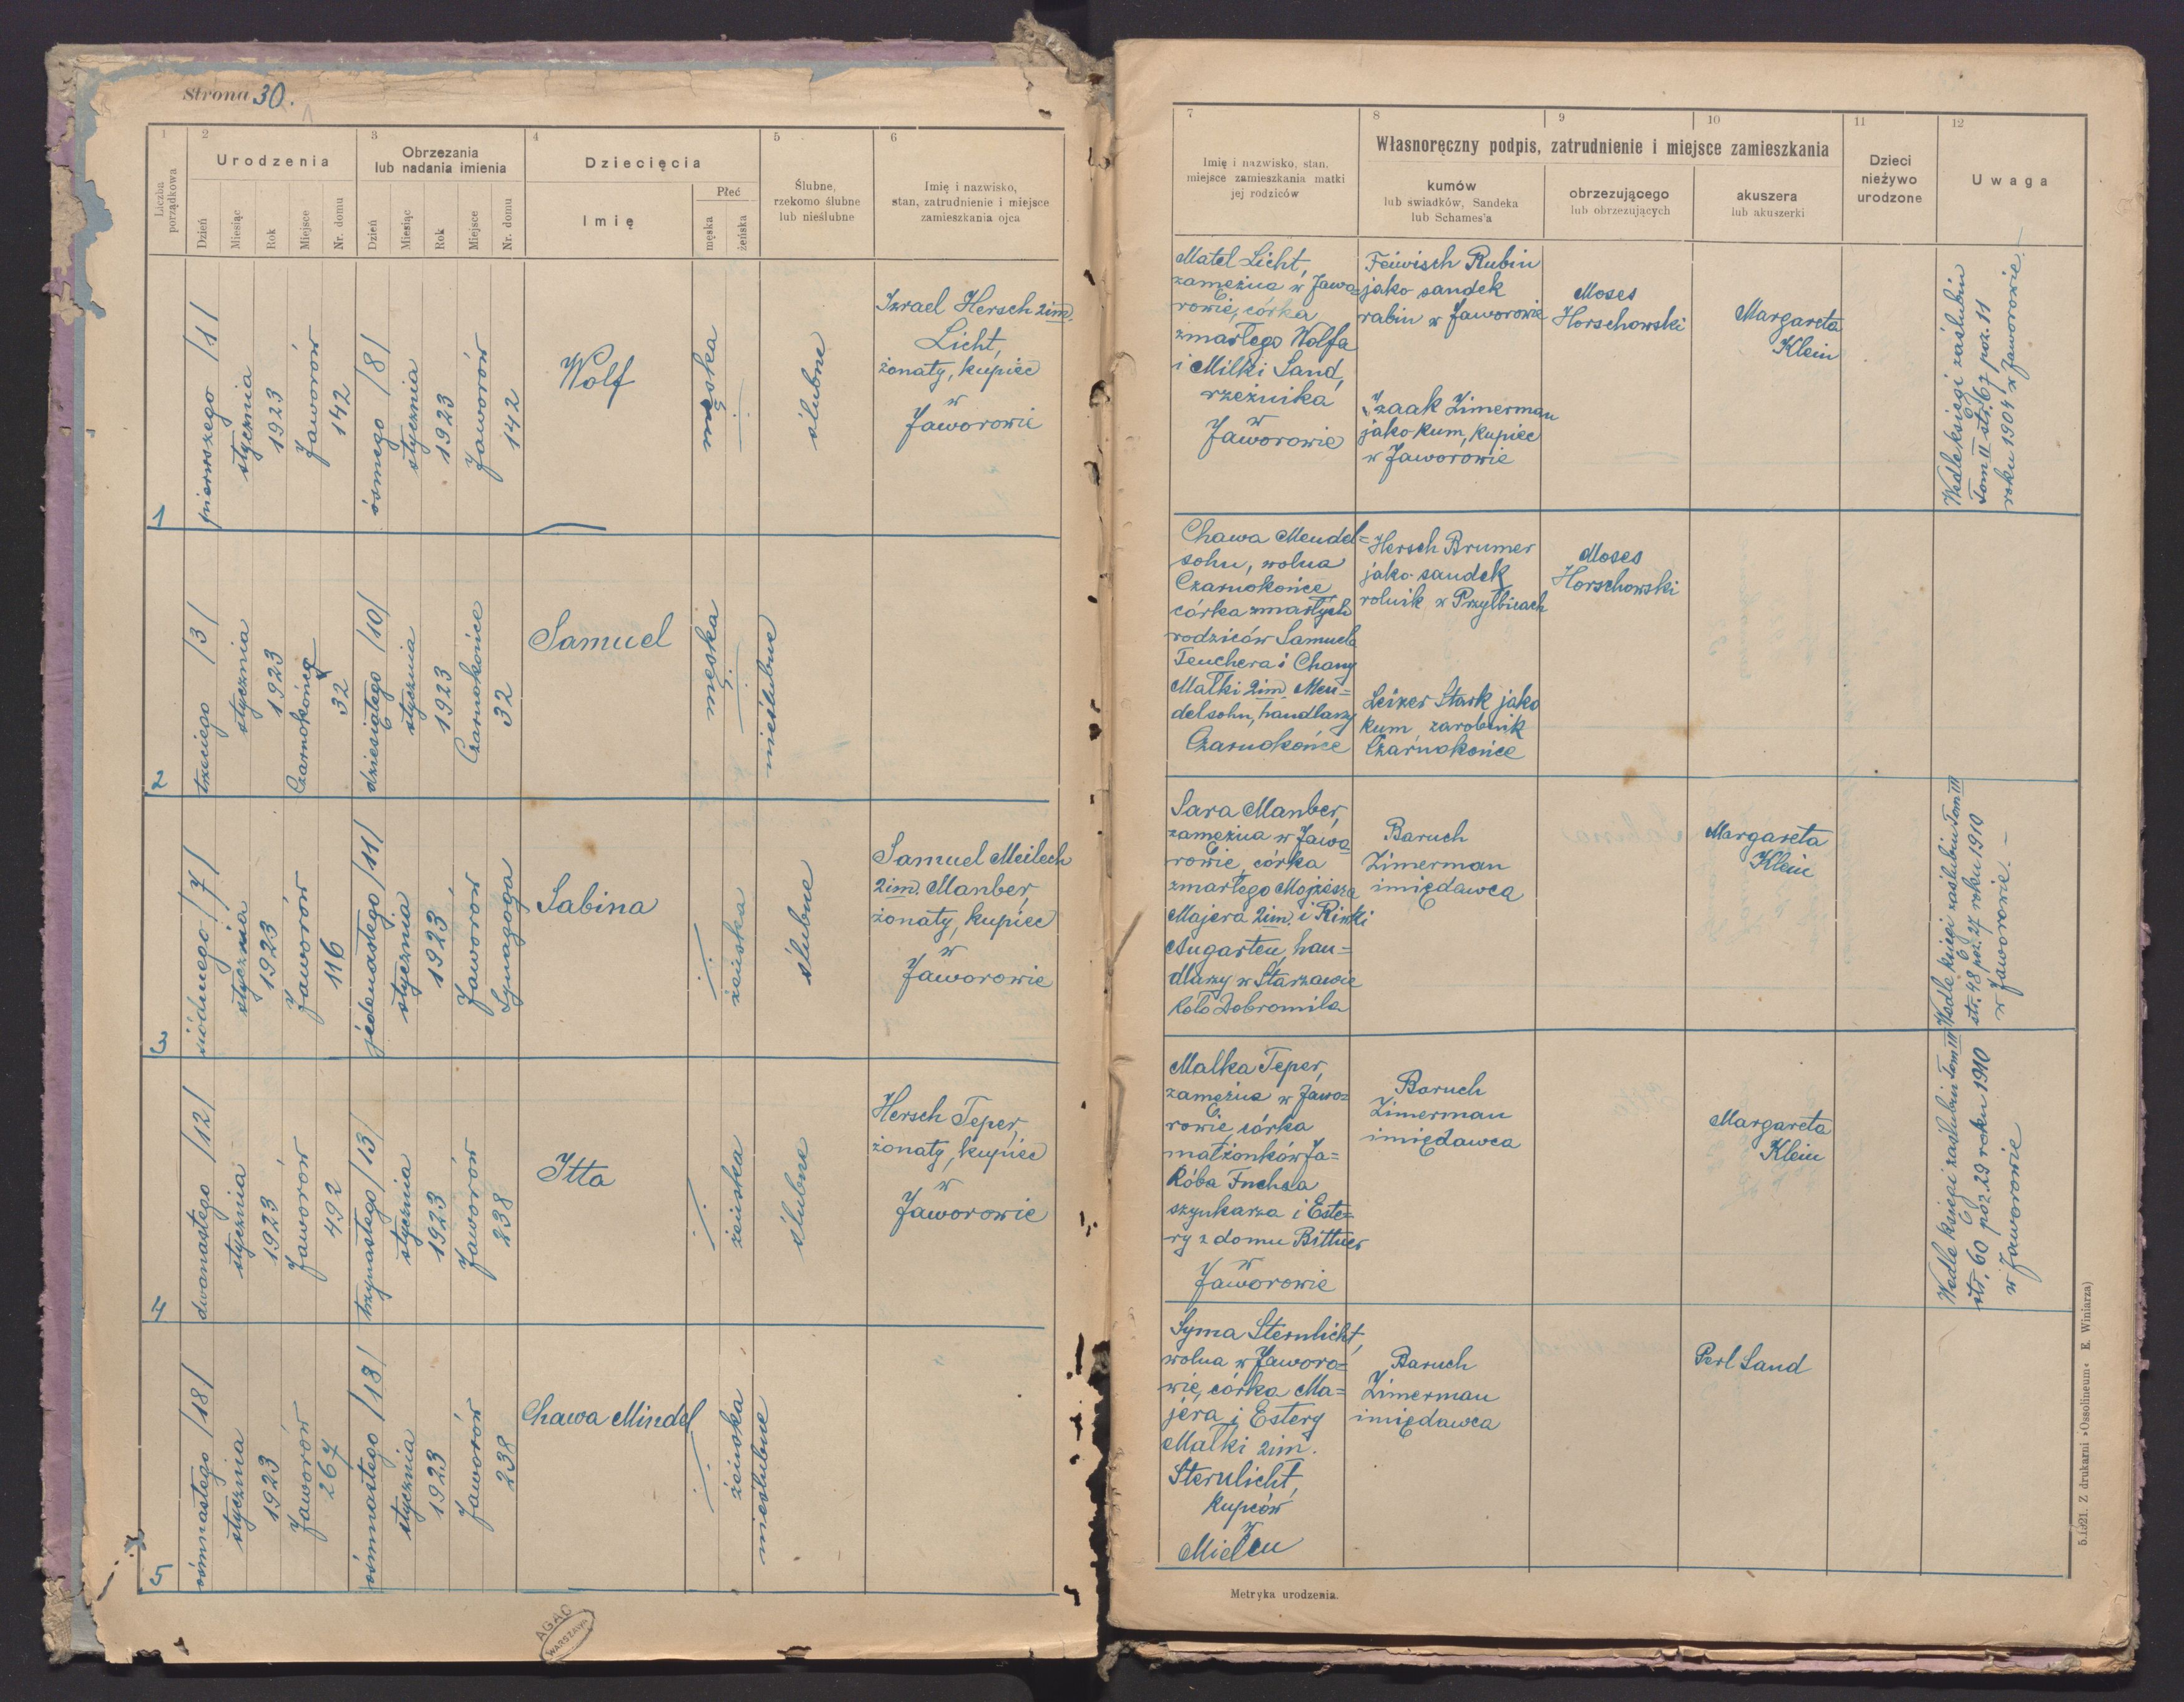 Strona 30.
1
2
3
4
5
6
Liczba
porządkowa
Urodzenia
Obrzezania
lub nadania imienia
Dziecięcia
Ślubne,
rzekomo ślubne
lub nieślubne
Imię i nazwisko,
stan, zatrudnienie i miejsce
zamieszkania ojca
Dzień
Miesiąc
Rok
Miejsce
Nr. domu
Dzień
Miesiąc
Rok
Miejsce
Nr. domu
Imię
Płeć
męska
żeńska
7
8
9
10
11
12
Imię i nazwisko, stan,
miejsce zamieszkania matki
jej rodziców
Własnoręczny podpis, zatrudnienie i miejsce zamieszkania
kumów
lub świadków, Sandeka
lub Schames'a
obrzezującego
lub obrzezujących
akuszera
lub akuszerki
Dzieci
nieżywo
urodzone
Uwaga
1
pierwszego /1/
stycznia
1923
Jaworów
142
ósmego /8/
stycznia
1923
Jaworów
142
Wolf
męska
ślubne
Izrael Hersch 2im.
Licht,
żonaty, kupiec
w
Jaworowie
Matel Licht,
zamężna w Jawo=
rowie, córka
zmarłego Wolfa
i Milki Sand,
rzeźnika
w
Jaworowie
Feiwisch Rubin
jako sandek
rabin w Jaworowie
Izaak Zimerman
jako kum, kupiec
w Jaworowie
Moses
Horschowski
Margareta
Klein
Wedle księgi zaślubin
Tom II str. 67 poz. 11
roku 1904 w Jaworowie.
2
trzeciego /3/
stycznia
1923
Czarnokońce
32
dziesiątego /10/
stycznia
1923
Czarnokońce
32
Samuel
męska
nieślubne
Chawa Mendel=
sohn, wolna
Czarnokońce
córka zmarłych
rodziców Samuela
Teuchera i Chany
Malki 2im. Men=
delsohn, handlarzy
Czarnokońce
Hersch Brumer
jako sandek
rolnik w Przyłbicach
Leizer Stark jako
kum, zarobnik
Czarnokońce
Moses
Horschowski
3
siódmego /7/
stycznia
1923
Jaworów
116
jedenastego /11/
stycznia
1923
Jaworów
Synagoga
Sabina
żeńska
ślubne
Samuel Meilech
2im. Manber,
żonaty, kupiec
w
Jaworowie
Sara Manber,
zamężna w Jawo=
rowie, córka
zmarłego Mojżesza
Majera 2im. i Rirki
Augarten, han=
dlarzy w Starzawie
koło Dobromila
Baruch
Zimerman
imiędawca
Margareta
Klein
Wedle księgi zaślubin Tom III
str. 48 poz. 27 roku 1910
w Jaworowie. —
4
dwanastego /12/
stycznia
1923
Jaworów
492
trzynastego /13/
stycznia
1923
Jaworów
238
Itta
żeńska
ślubne
Hersch Teper,
żonaty, kupiec
w
Jaworowie
Malka Teper,
zamężna w Jawo=
rowie córka
małżonków Ja=
kóba Fuchsa
szynkarza i Este=
ry z domu Bittner
w
Jaworowie
Baruch
Zimerman
imiędawca
Margareta
Klein
Wedle księgi zaślubin Tom III
str. 60 poz. 29 roku 1910
w Jaworowie
5
ośmnastego /18/
stycznia
1923
Jaworów
267
ośmnastego /18/
stycznia
1923
Jaworów
238
Chawa Mindel
żeńska
nieślubne
Syma Sternlicht,
wolna w Jaworo=
wie, córka Ma=
jera i Estery
Malki 2im.
Sternlicht,
kupców
w
Mielcu
Baruch
Zimerman
imiędawca
Perl Sand
Metryka urodzenia.
5.1921. Z drukarni »Ossolineum« E. Winiarza)
AGAD
WARSZAWA